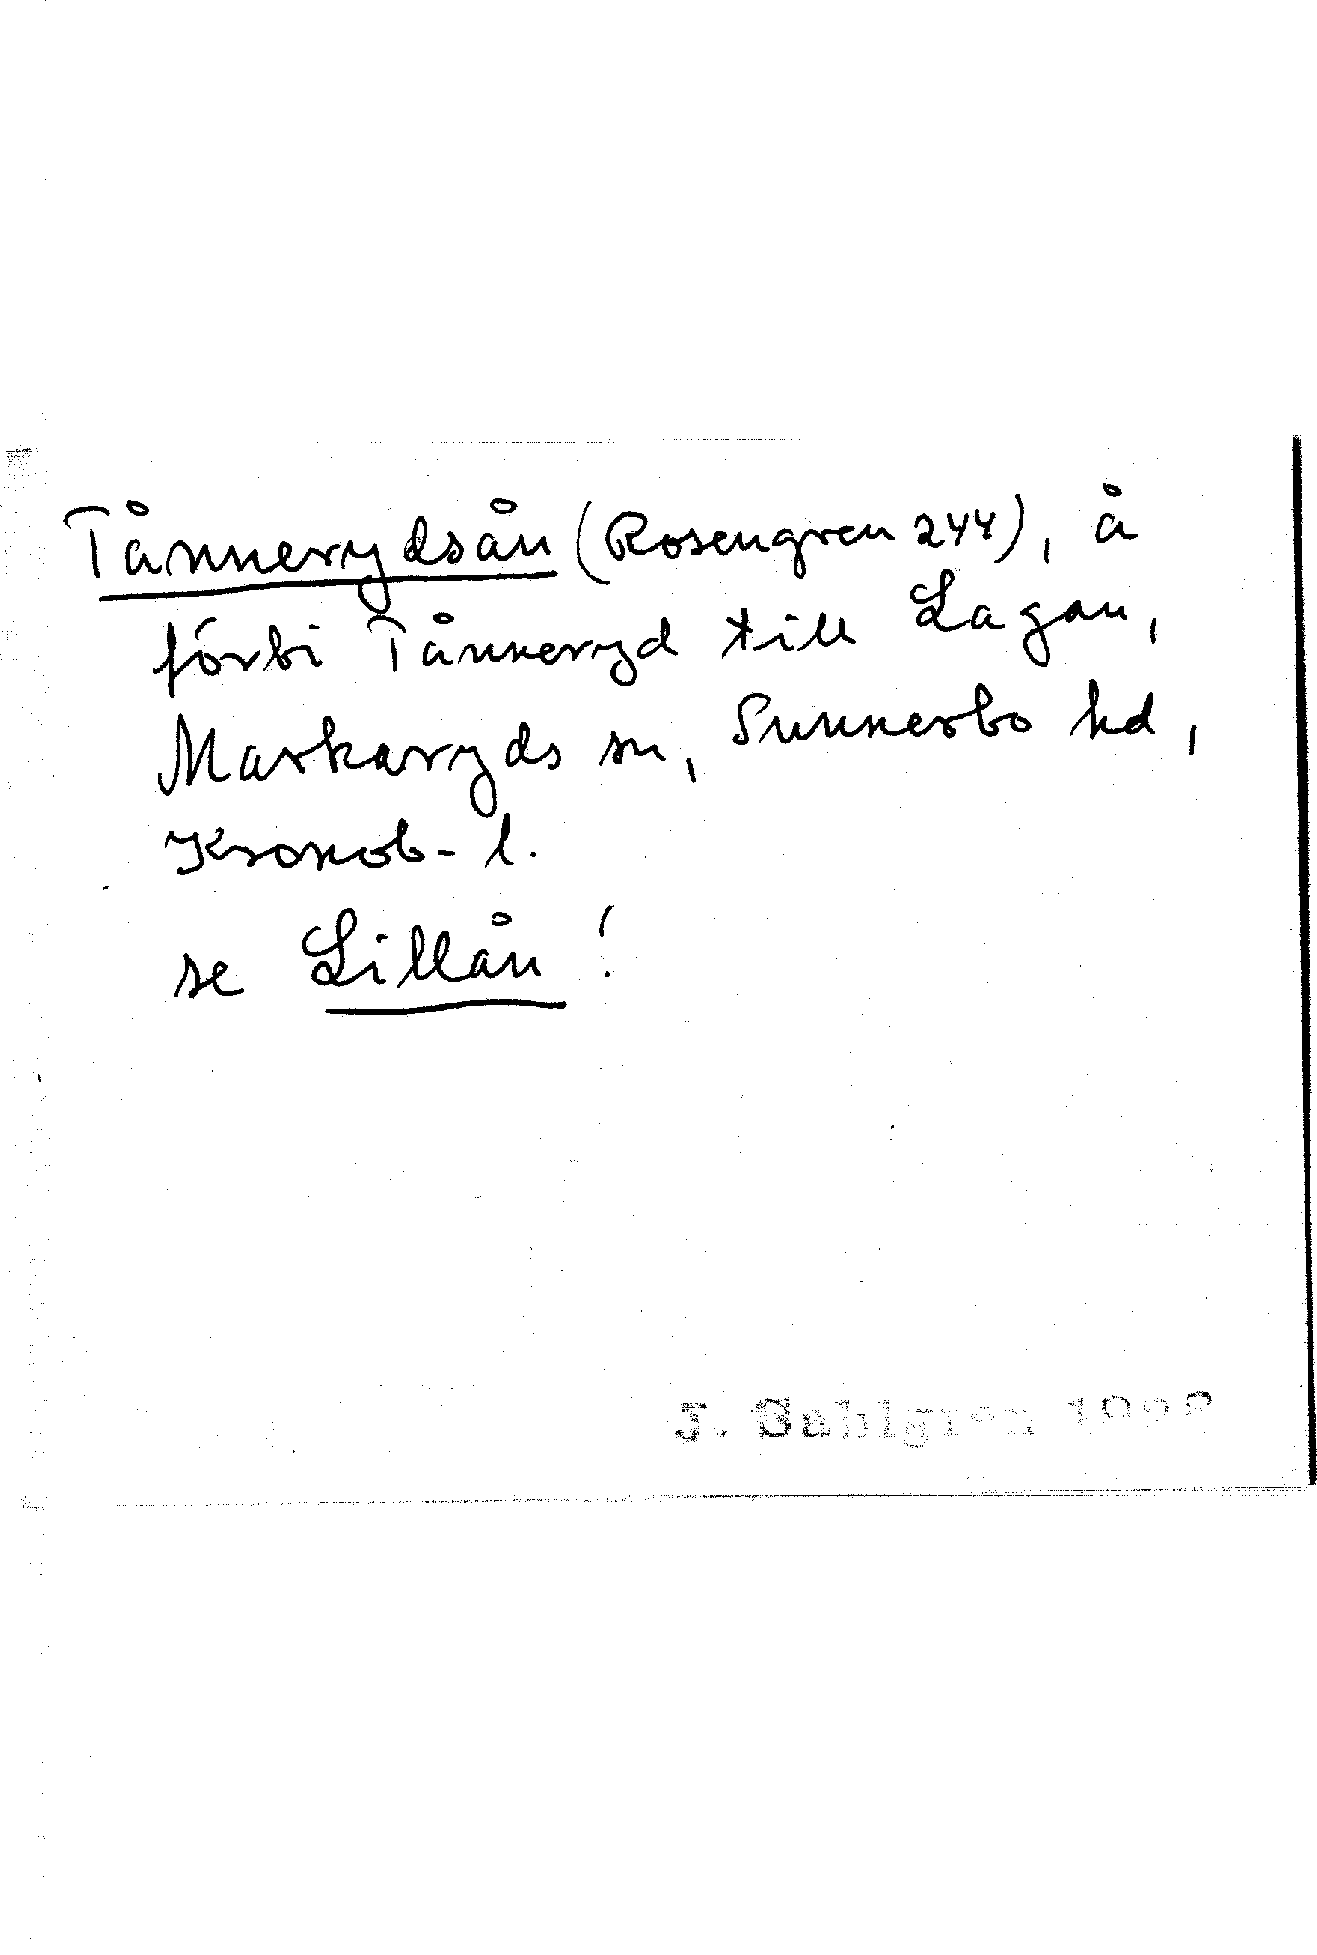 Tånnerydsån (Rosengren 244), å
förbi Tånneryd till Lagan,
Markaryds sn, Sunnerbo hd,
Kronob-l.
se Lillån!
J. Sahlgren